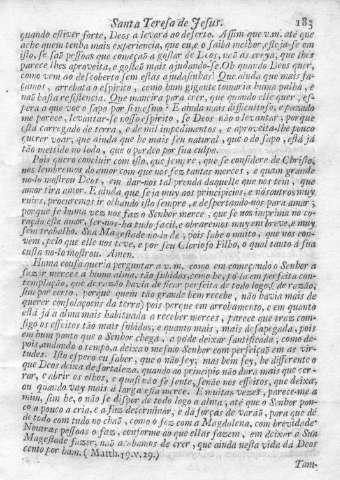 Santa Teresa de Jesus. 183
quando estiver forte, Deos a levará ao deserto. Assim que v.m. até que
ache quem tenha mais experiencia, que eu, e o saiba melhor, esteja-se em
isto, se saõ pessoas que começaõ a gostar de Deos, naõ as creya, que lhes
parece lhes aproveita, e gostaõ mais ajudando-se. Oh quando Deos quer,
como vem ao descoberto sem estas ajudasinhas! Que ainda que mais fa-
çamos, arrebata o espirito, como hum gigante tomaria huma palha, e
naõ basta resistencia. Que maneira para crer, que quando elle quer, es-
pera a que voe o sapo por si mesmo? E ainda mais difficultoso, e pezado
me parece, levantar-se nosso espirito, se Deos naõ o levantar, porque
está carregado de terra, e de mil impedimentos, e aproveita-lhe pouco
querer voar, que ainda que he mais seu natural, que o do sapo, está já
taõ metido no lodo, que o perdeo por sua culpa.
Pois quero concluir com isto, que sempre, que se considere de Christo,
nos lembremos do amor com que nos fez tantas merces, e quam grande
no-lo mostrou Deos, em dar-nos tal prenda daquelle que nos tem, que
amor tira amor. E ainda que seja muy aos principios, e nós outros muy
ruins, procuremos ir olhando isto sempre, e despertando-nos para amar;
porque se huma vez nos faz o Senhor merce, que se nos imprima no co-
raçaõ este amor, ser-nos-ha tudo facil, e obraremos muy em breve, e muy
sem trabalho. Sua Magestade no-lo dê, pois sabe o muito, que nos con-
vem, pelo que elle nos teve, e por seu Glorioso Filho, o qual tanto á sua
custa no-lo mostrou. Amen.
Huma cousa queria perguntar a v.m. como em começando o Senhor a
fazer merces a huma alma, taõ subidas, como he, pô-la em perfeita con-
templaçaõ, que de razaõ havia de ficar perfeita de todo logo; (de razaõ,
sim por certo, porque quem taõ grande bem recebe, naõ havia mais de
querer consolações da terra) pois porque em arrobamento, e em quanto
está já a alma mais habituada a receber merces, parece que traz com-
sigo os effeitos taõ mais subidos, e quanto mais, mais desapegada, pois
em hum ponto que o Senhor chega, a póde deixar santificada, como de-
pois, andando o tempo, a deixa o mesmo Senhor com perfeiçaõ em as vir-
tudes. Isto espero eu saber, que o naõ sey; mas bem sey, he differente o
que Deos deixa de fortaleza, quando ao principio naõ dura mais que cer-
rar, e abrir os olhos, e quasi naõ se sente, senaõ nos effeitos, que deixar,
ou quando vay mais á larga essa merce. E muitas vezes, parece-me a
mim, sim he, o naõ se dispor de todo logo a alma, até que o Senhor pou-
co a pouco a cria, e a faz determinar, e dá forças de varaõ, para que dê
de todo com tudo no chaõ, como o fez com a Magdalena, com brevidade
Noutras pessoas o faz, conforme ao que ellas fazem, em deixar a Sua
Magestade fazer, naõ acabamos de crer, que ainda nesta vida dá Deos
cento por hum. (Matth. 19. v. 29.)
Tam-